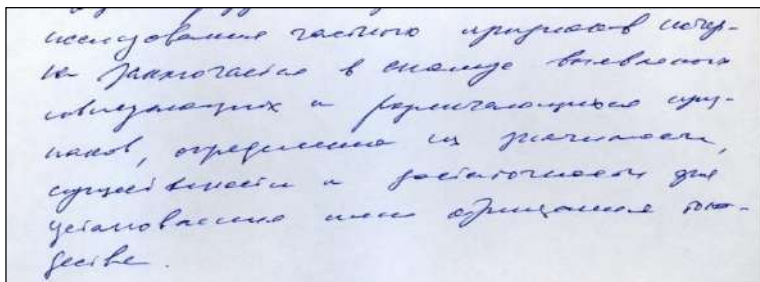 исследования частного признаков почер-
ка заключается в анализе выявленных
совпадающих и различающихся приз-
наков, определение их значимости,
существенности и достаточности для
установления или отрицания тож-
дества.